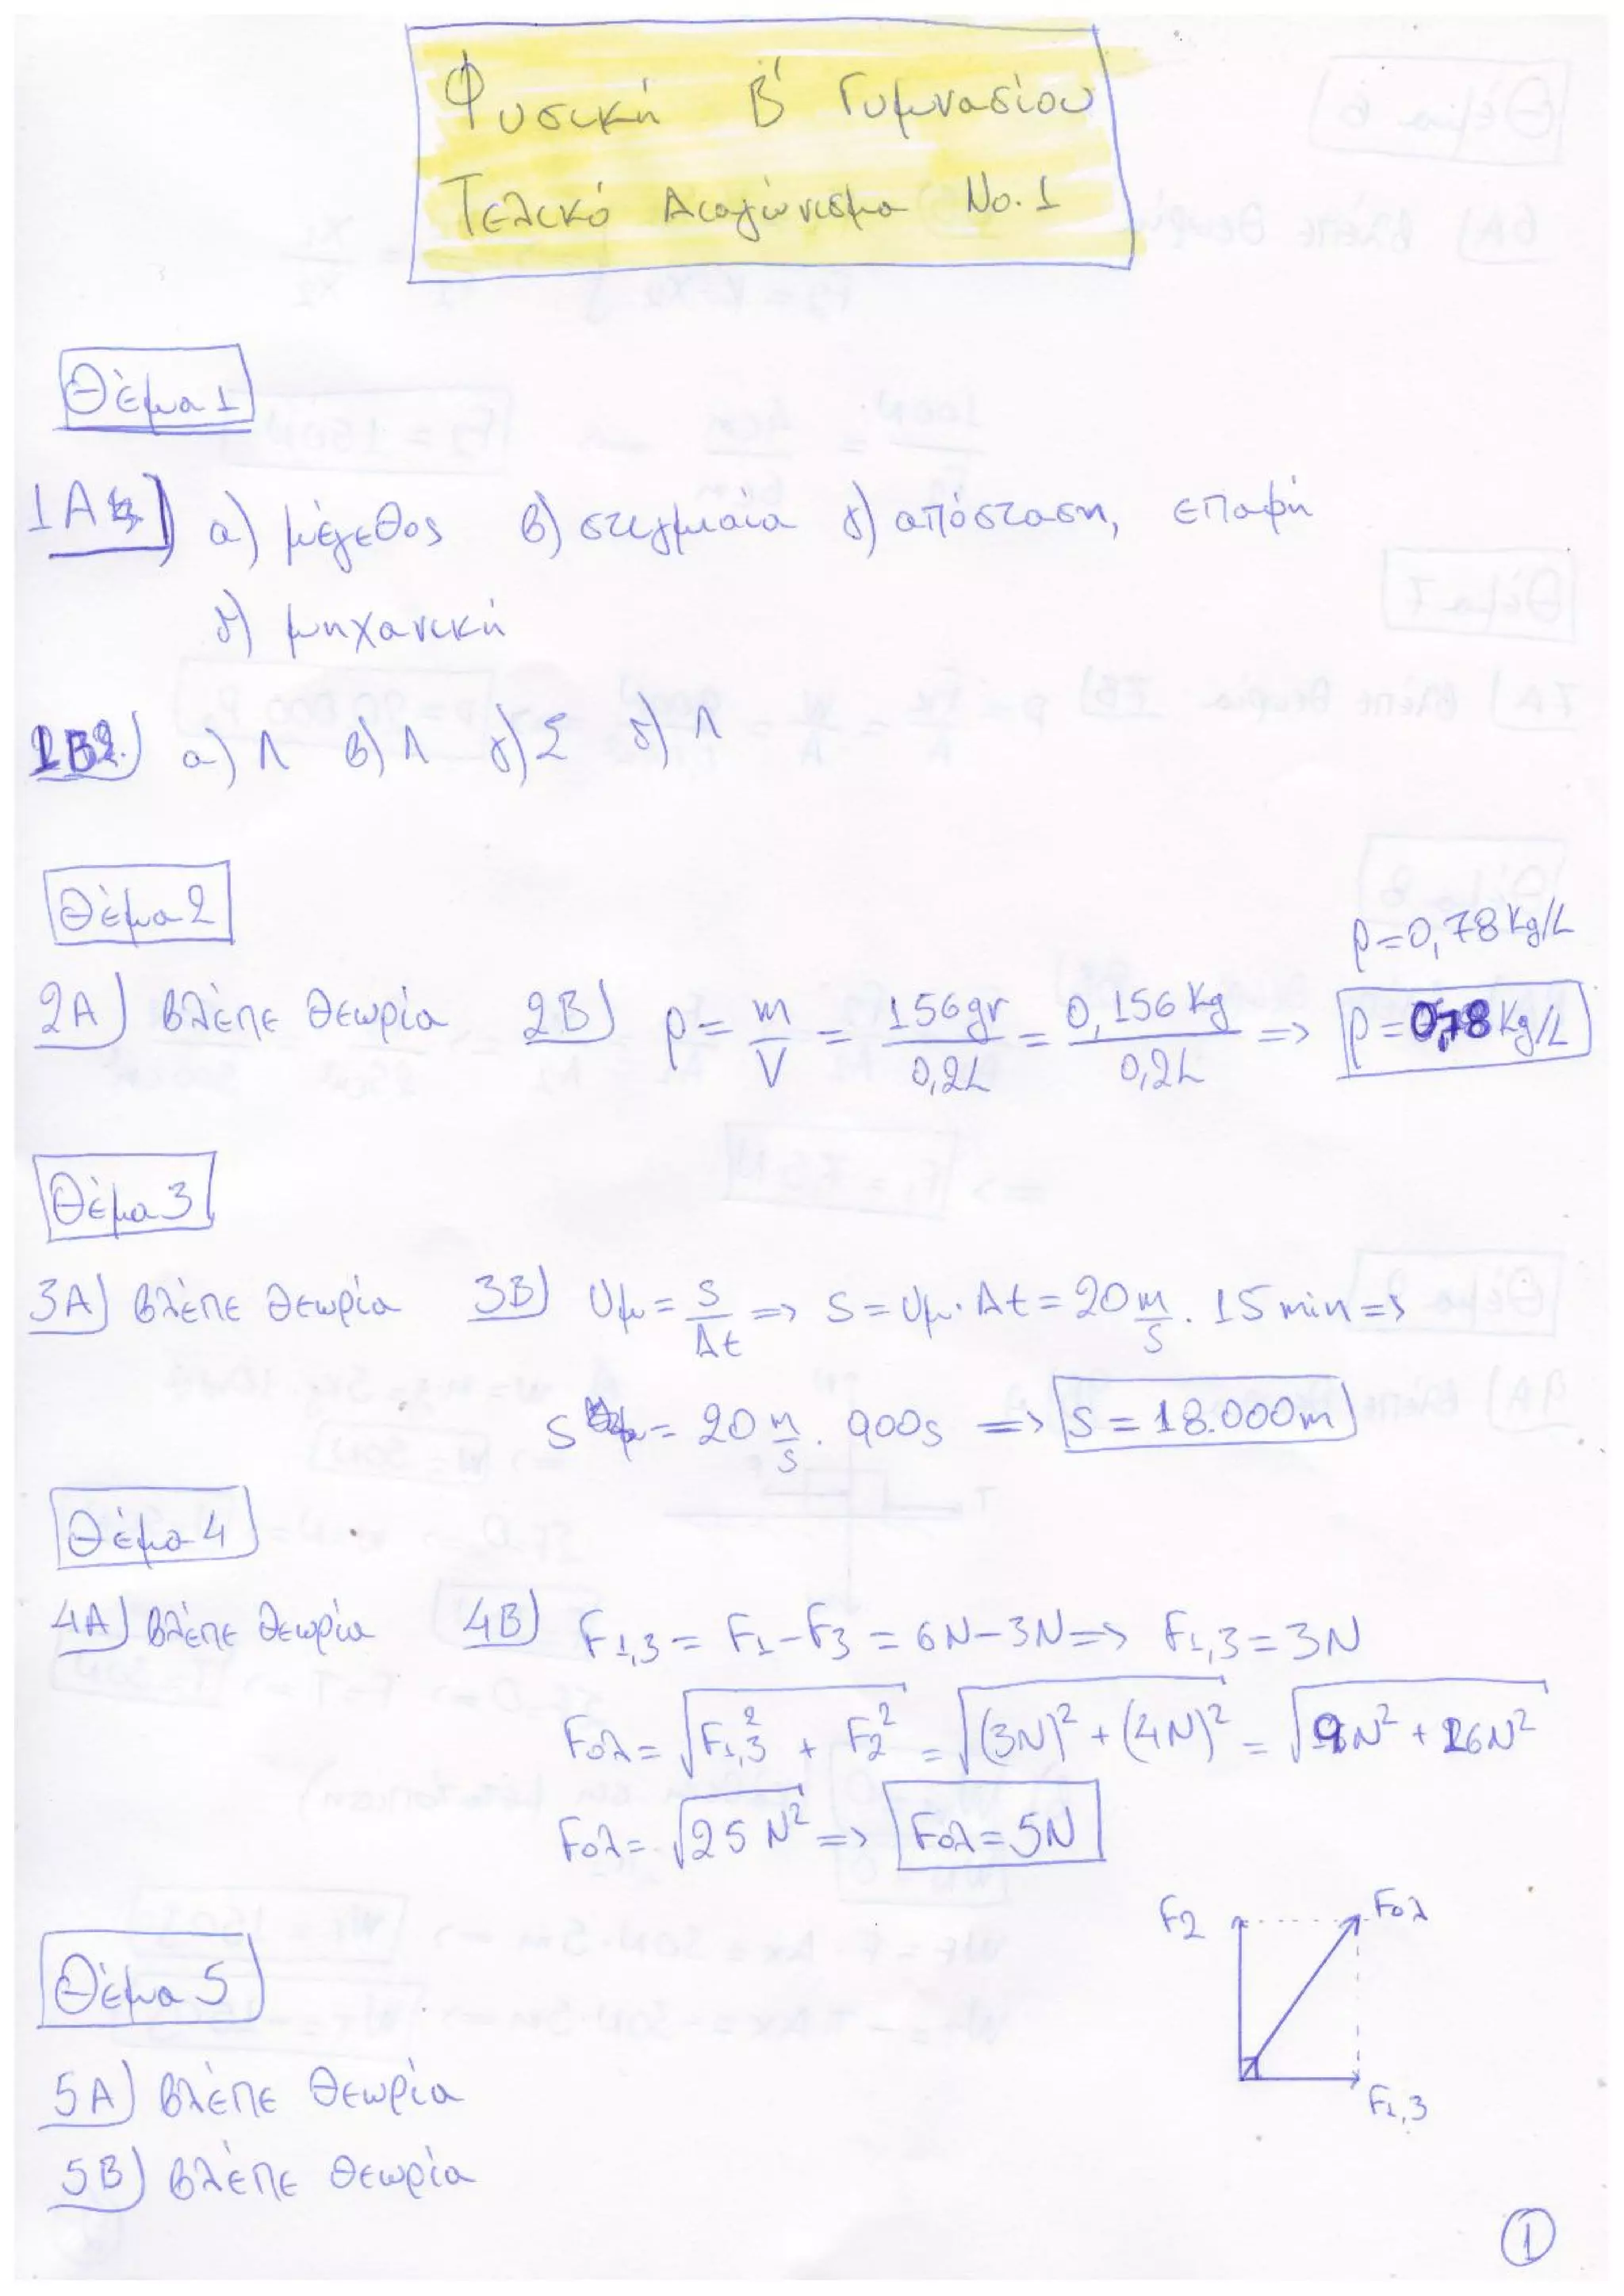 Φυσική Β' Γυμνασίου
Τελικό Διαγώνισμα Νο. 1
Θέμα 1
1Α) α) μέγεθος β) στιγμιαία γ) απόσταση, επαφή
δ) μηχανική
1Β) α) Λ β) Λ γ) Σ δ) Λ
Θέμα 2
ρ = 0,78 Kg/L
2Α) βλέπε θεωρία 2Β) ρ = m/V = 156gr/0,2L = 0,156 Kg/0,2L => ρ = 0,78 Kg/L
Θέμα 3
3Α) βλέπε θεωρία 3Β) υμ = s/Δt => s = υμ · Δt = 20 m/s · 15 min =>
s = 20 m/s · 900s => s = 18.000m
Θέμα 4
4Α) βλέπε θεωρία 4Β) F1,3 = F1 - F3 = 6N - 3N => F1,3 = 3N
Fολ = √(F1,3² + F2²) = √((3N)² + (4N)²) = √(9N² + 16N²)
Fολ = √(25 N²) => Fολ = 5N
F2 Fολ
Θέμα 5
5Α) βλέπε θεωρία
F1,3
5Β) βλέπε θεωρία
1